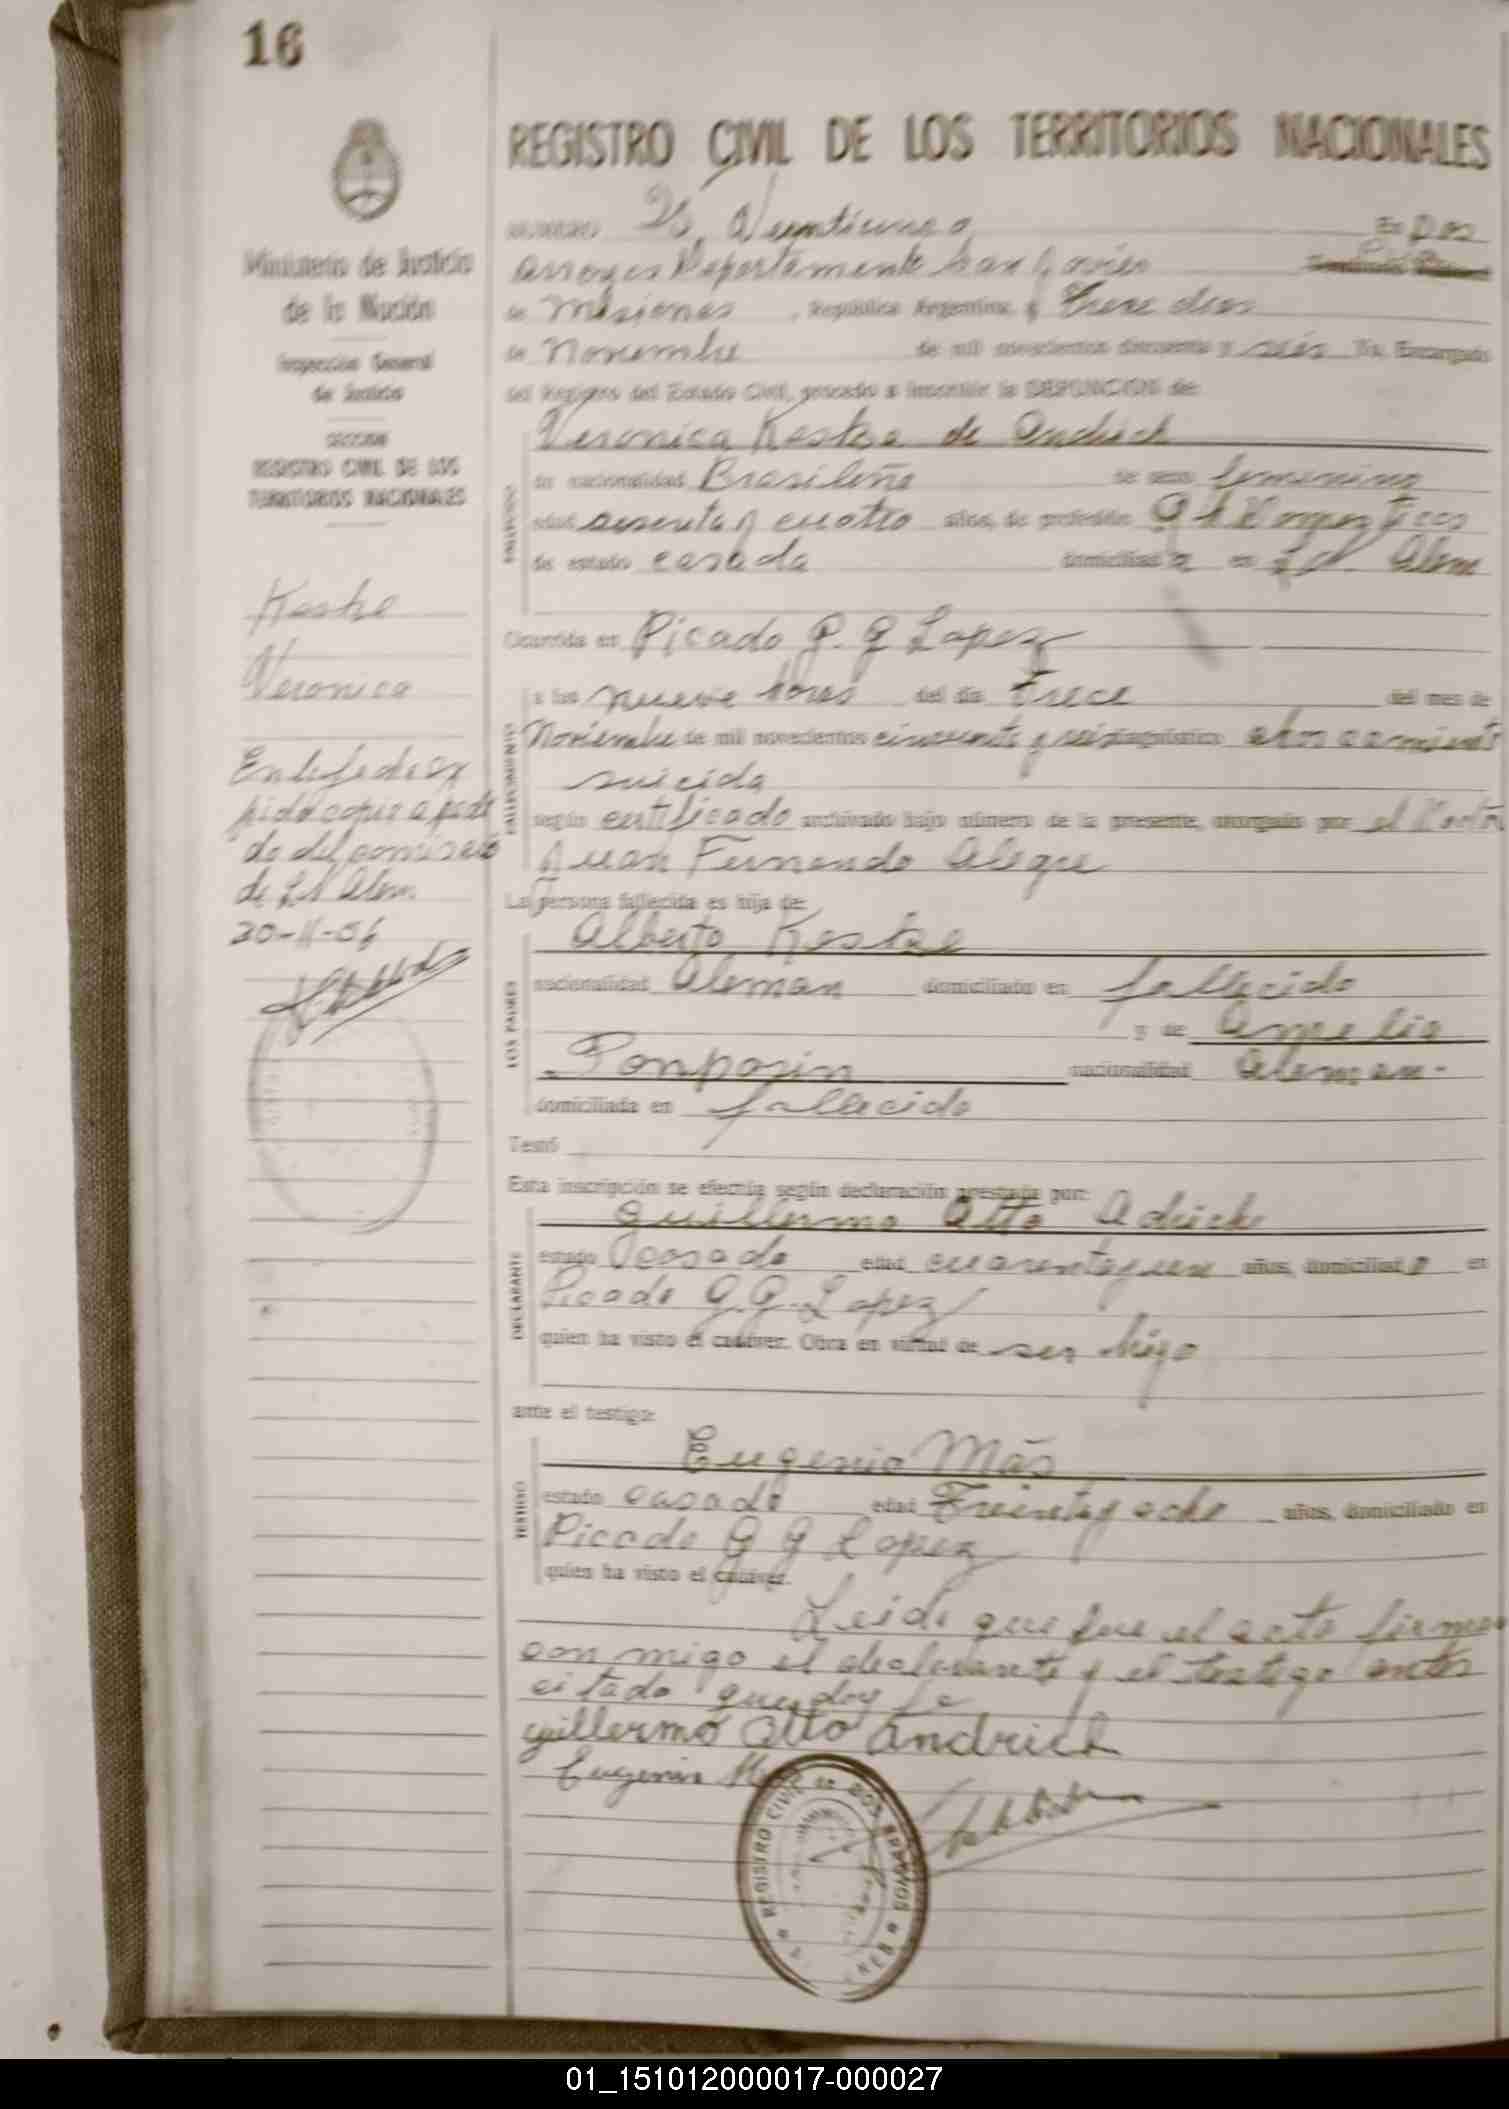 16
REGISTRO CIVIL DE LOS TERRITORIOS NACIONALES
Ministerio de Justicia
de la Nución
Inspección General
de Justicia
SECCION
REGISTRO CIVIL DE LOS
TERRITORIOS NACIONALES
NUMERO Veintiuno En Dos
arroyos Departamento San Javier
de Misiones, República Argentina, a trece dias
de Noviembre de mil novecientos cincuenta y seis Yo, Encargado
del Registro del Estado Civil, procedo a inscribir la DEFUNCION de:
Veronica Kestke de Andrich
de nacionalidad Brasileña de sexo femenino
edad sesenta y cuatro años, de profesión
de estado casada domiciliada en L N Alem
Ocurrida en Picado G. G Lopez
a las nueve horas del día trece del mes de
Noviembre de mil novecientos cincuenta y seis diagnóstico ahorcamiento
suicida
según certificado archivado bajo número de la presente, otorgado por el Doctor
Juan Fernando Alegre
La persona fallecida es hija de:
Alberto Kestke
nacionalidad Aleman domiciliado en fallecido
y de Amelia
nacionalidad Aleman-
domiciliada en fallecido
Testó
Esta inscripción se efectúa según declaración prestada por:
Guillermo Otto Adrich
estado casado edad cuarentayun años, domiciliado en
Picado G. G. Lopez
quien ha visto el cadáver. Obra en virtud de ser hijo
ante el testigo:
Eugenio Más
estado casado edad Treintay ocho años, domiciliado en
Picado G G Lopez
quien ha visto el cadáver.
Leido que fue el acta firman
con migo el declarante y el testigo antes
citado que doy fe
guillermo Otto Andrich
Eugenio Mas
REGISTRO CIVIL DOS
Kestke
Veronica
En la fecha se
pide copia a pedi
do del comisario
de L N Alem.
20-11-56
FALLECIDO
FALLECIMIENTO
LOS PADRES
DECLARANTE
TESTIGO
01_151012000017-000027